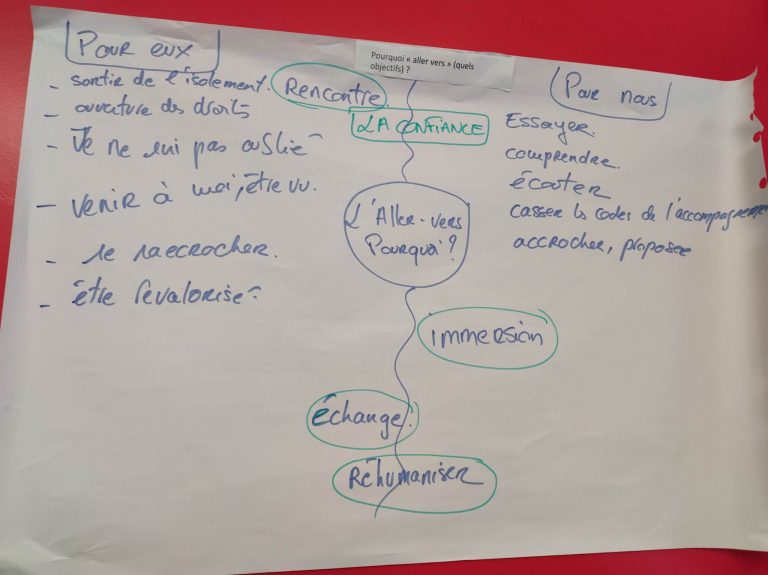 Pourquoi « aller vers » (quels
objectifs) ?
Pour eux
- sortir de l'isolement.
- ouverture des droits
- Je ne suis pas oublié
- venir à moi, être vu.
- se raccrocher.
- être revalorisé
Rencontre
LA CONFIANCE
L'Aller-vers
Pourquoi ?
immersion
échange
Réhumaniser
Pour nous
Essayer
comprendre.
écouter
casser les codes de l'accompagnement
accrocher, proposer